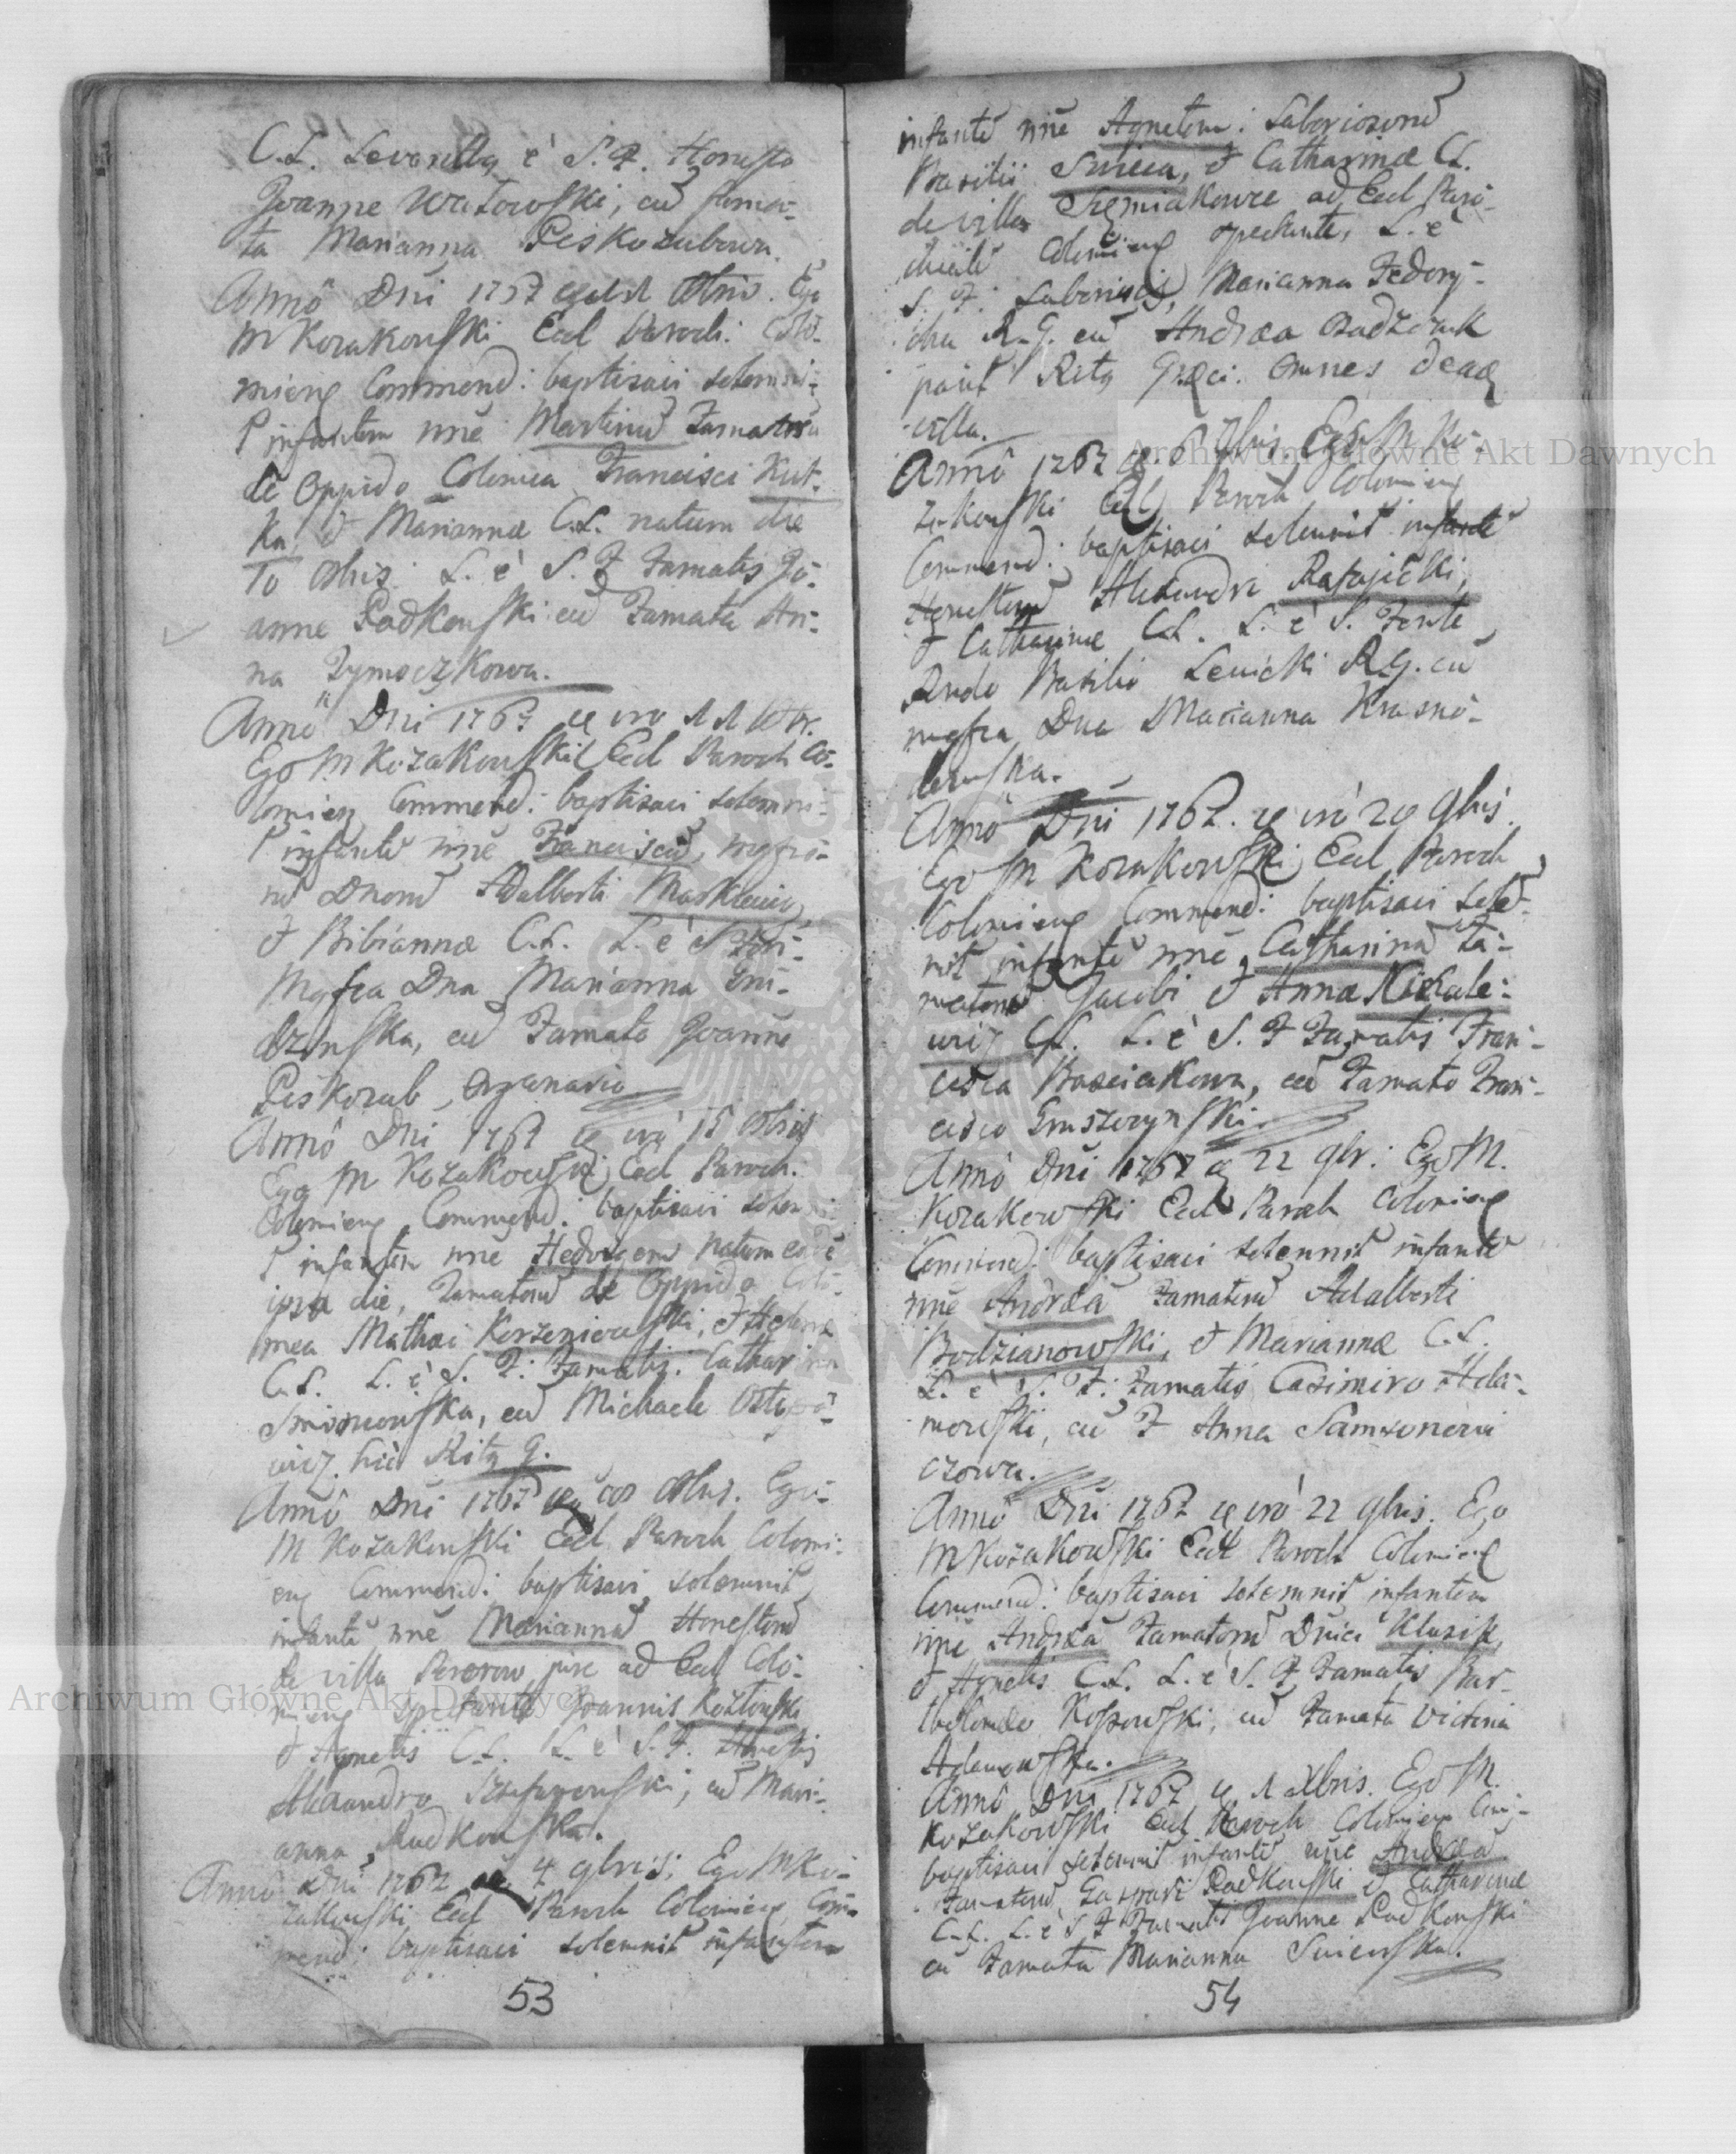 C.L. Levantes è S. F. Honesto
Joanne Watowski, cū fama-
ta Marianna Piskozubowa.
Annô Dni 1767 Obris. Ego
M Kozakowski Eccl Paroch: Colo-
mieng Commend: baptisavi solemni-
t infantem nne Martinū Famatorū
de Oppido Colomea Francisci Kut-
ka, & Mariannæ C.L. natum die
10 Obris. L. è S. F Famatis Jo-
anne Radkowski cū Famata An-
na Tymoczkowa.
Annô Dni 1767 vro 11 Obr.
Ego M Kozakowski Eccl Paroch Co-
lomieng Commend: baptisavi solemni-
t infantē nnē Franciscū, mgfco-
rū Dnorū Adalberti Maskiewicz,
& Bibiannæ C.L. L. è S Fonte
Mgfca Dna Marianna Gru-
dzinska, cū Famato Joanne
Piskozub, Organario
Annô Dni 1767 vrò 15 Obris
Ego M Kozakowski Eccl Paroch:
Colomieng Commend: baptisavi solemni-
t infantem nne Hedvigem natum eadē
ipsa die, Famatorū de Oppido Colo-
mea Mathæi Korzeniowski, & Helenæ
C.L. L. è S. F: Famatis: Catharina
cū Michaele Ostapo-
wicz. Ritg G.
Annô Dni 1767 Obris. Ego
M Kozakowski Eccl Paroch Colomi-
eng Commend: baptisavi solemnit
infantē nnē Mariannā Honestorū
de villa jure ad Eccl Colo-
mieng spectante Joannis Kozlowski
& Agnetis C.L. L. è S. F. Honestis
Alexandro Stefanowski, cū Mari-
anna Radkowska.
Annô Dni 1767 4 9bris: Ego M Ko-
zakowski Eccl Paroch Colomieng Com-
mend: baptisavi solemnit infantem
53
infantē nnē Agnetem: Laboriosorū
Basilii & Catharinæ C.L.
de villa Siemiakowce ad Eccl Paro-
chialē Colomieng spectante, L. è
S. F: Laboriosis, Marianna Fedory-
cha R.G. cū Andrea
parit Ritg Græci. Omnes de eadē
villa.
Annô 1767 9bris Ego M Ko-
zakowski Eccl Paroch Colomieng
Commend: baptisavi solemnit infantē
Honestorū Alexandri Ratajski,
& Catharinæ C.L. L. è S. Fonte
Rndo Basilio Lewicki R.G. cū
mgfca Dna Marianna Krasno-
Annô Dni 1767. vrò 20 9bris.
Ego M Kozakowski Eccl Paroch
Colomieng Commend: baptisavi solē-
nit infantē nnē Catharinā Fa-
matorū Jacobi & Annæ Michale-
wicz C.L. L. è S. F Famatis Fran-
cisca Bosciakowa, cū Famato Fran-
cisco Gruszczynski.
Annô Dni 1767 22 9br: Ego M.
Kozakowski Eccl Paroch Colomieng
Commend: baptisavi solennit infantē
nnē Andreā Famatorū Adalberti
Bodzianowski, & Mariannæ C.L.
L. è S. F: Famatis Casimiro Ada-
mowski, cū F Anna Samsonowi
czowa.
Annô Dni 1767 vrò 22 9bris. Ego
M Kozakowski Eccl Paroch Colomieng
Commend: baptisavi solemnit infantem
nnē Andreā Famatorū Dnici Klusik,
& Agnetis C.L. L. è S. F Famatis Bar-
tholomæo Kossowski, cū Famata Victoria
Adamowska.
Annô Dni 1767 1 Xbris. Ego M.
Kozakowski Eccl Paroch Colomieng Com-
baptisavi solemnit infantē nnē Andreā
Famatorū Gaspari Radkowski & Catharinæ
C.L. L. è S F Famatis Joanne Radkowski
cū Famata Marianna
54
Archiwum Główne Akt Dawnych
Archiwum Główne Akt Dawnych